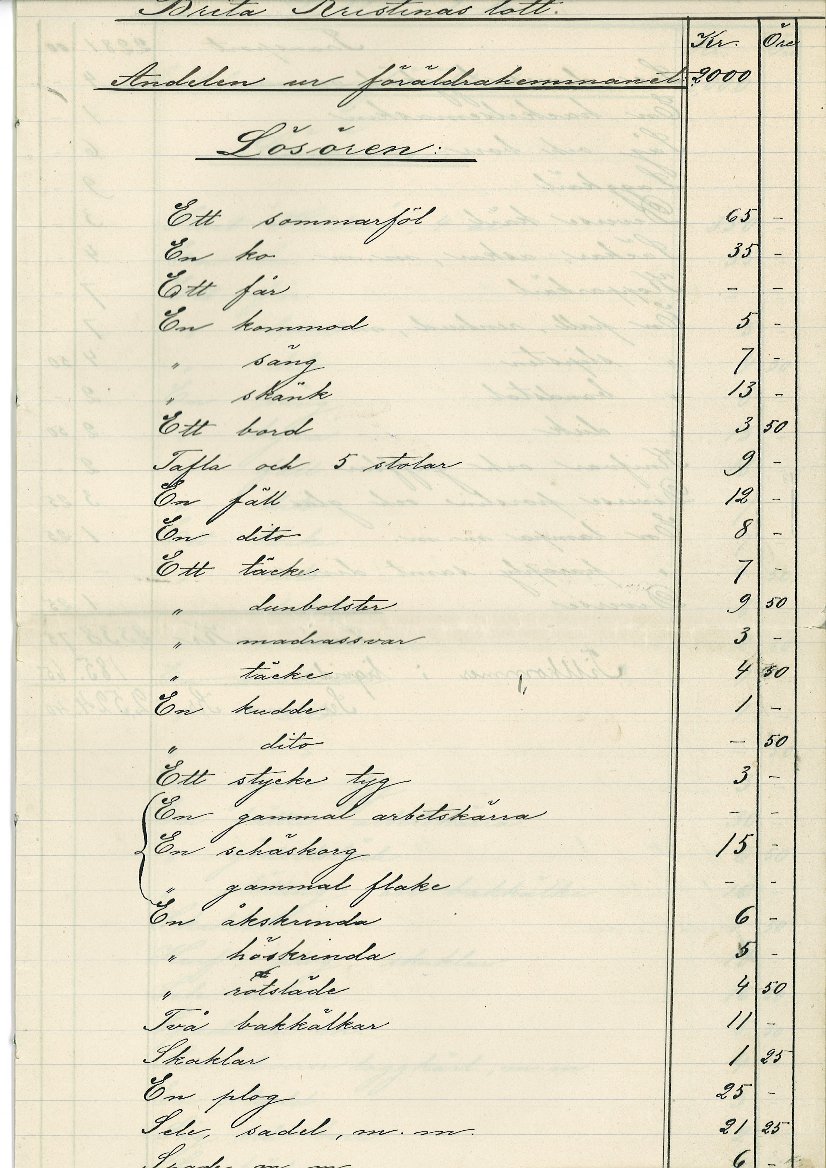 Brita Kristinas lott.
Kr. Öre
Andelen ur föräldrahemmanet: 2000
Lösören:
Ett sommarföl 65 -
En ko 35 -
Ett får - -
En kommod 5 -
" säng 7 -
" skänk 13 -
Ett bord 3 50
Tafla och 5 stolar 9 -
En fäll 12 -
En dito 8 -
Ett täcke 7 -
" dunbolster 9 50
" madrassvar 3 -
" täcke 4 50
En kudde 1 -
" dito - 50
Ett stycke tyg 3 -
En gammal arbetskärra - -
En schäskorg 15 -
" gammal flake - -
En åkskrinda 6 -
" höskrinda 5 -
" rotsläde 4 50
Två bakkälkar 11 -
Skaklar 1 25
En plog 25 -
Sele, sadel, m. m. 21 25
Spade m. m. 6 -